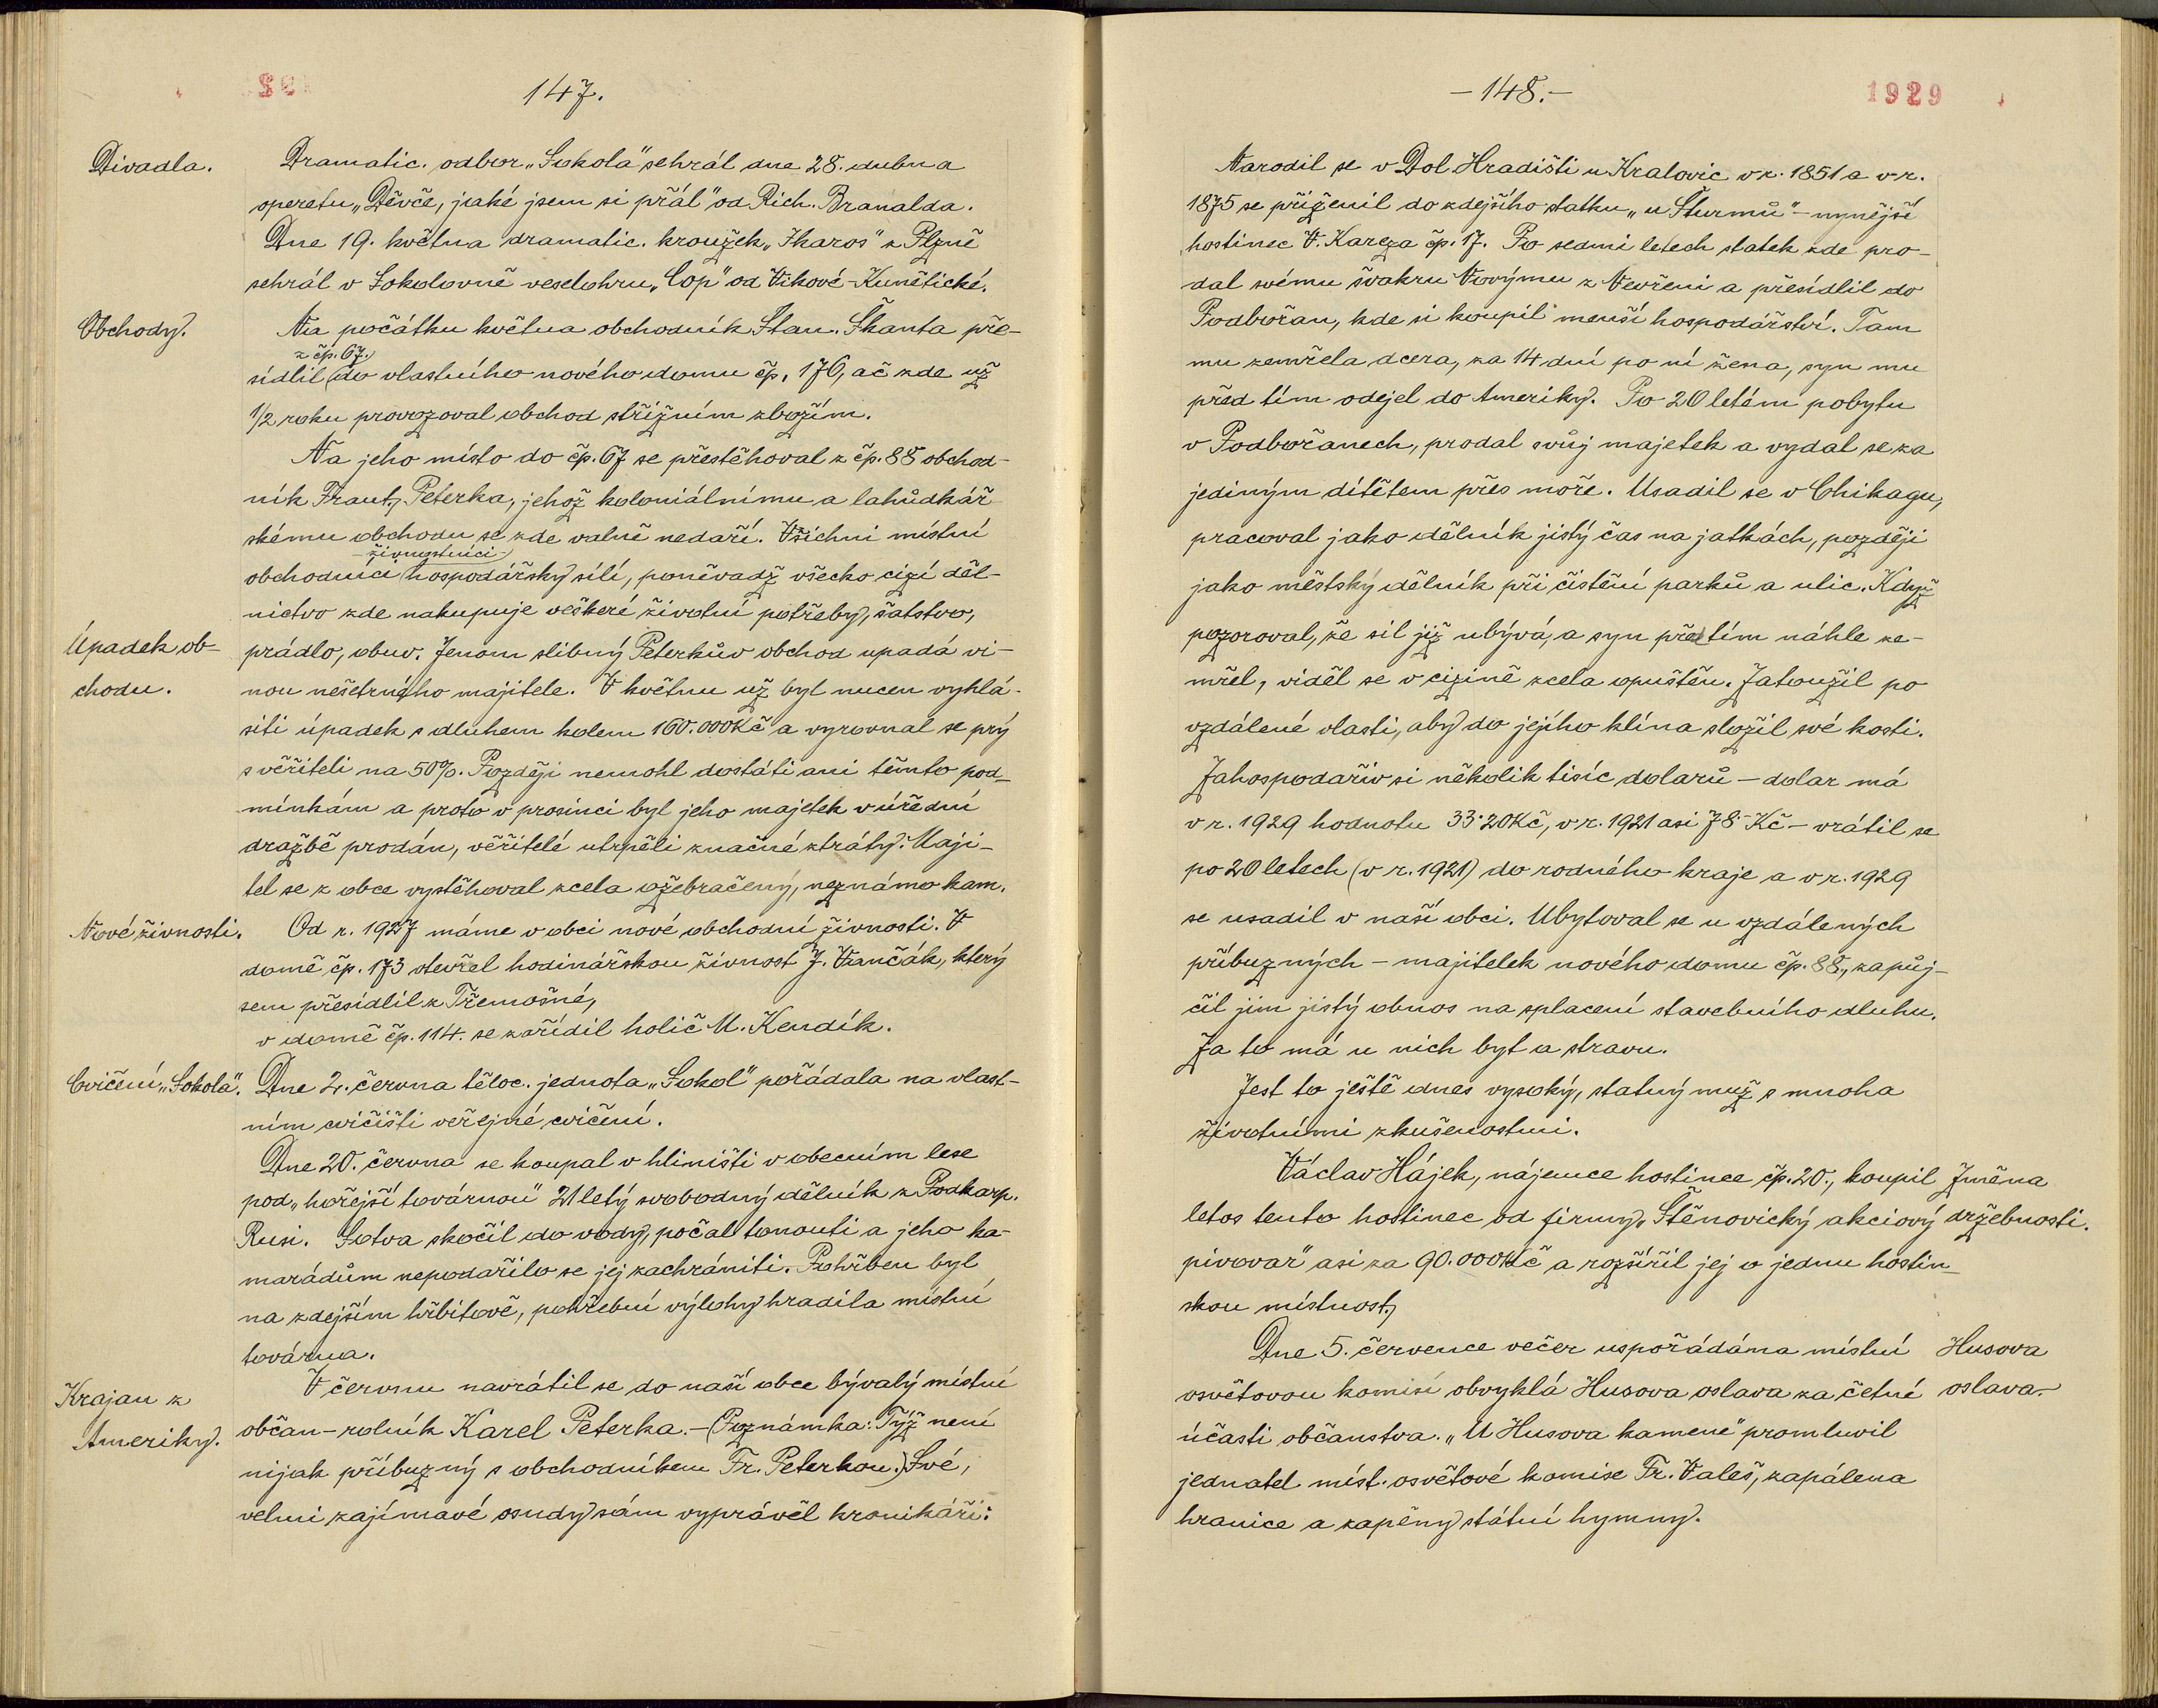 147.
Divadla.
Dramatic. odbor „Sokola" sehrál dne 28. dubna
operetu „Děvče, jaké jsem si přál" od Rich. Branalda.
Dne 19. května dramatic. kroužek „Ikaros" z Plzně
sehrál v Sokolovně veselohru „Cop" od Vikové-Kunětické.
Obchody.
Na počátku května obchodník Stan. Škanta pře-
z čp. 67.
sídlil do vlastního nového domu čp. 176, ač zde už
1/2 roku provozoval obchod střižním zbožím.
Na jeho místo do čp. 67 se přestěhoval z čp. 88 obchod-
ník Frant. Peterka, jehož koloniálnímu a lahůdkář-
skému obchodu se zde valně nedaří. Všichni místní
- živnostníci
obchodníci hospodářsky sílí, poněvadž všecko cizí děl-
nictvo zde nakupuje veškeré životní potřeby, šatstvo,
Úpadek ob-
chodu.
prádlo, obuv. Jenom slibný Peterkův obchod upadá vi-
nou nešetrného majitele. V květnu už byl nucen vyhlá-
siti úpadek s dluhem kolem 160.000 Kč a vyrovnal se prý
s věřiteli na 50%. Později nemohl dostáti ani těmto pod-
mínkám a proto v prosinci byl jeho majetek v úřední
dražbě prodán, věřitelé utrpěli značné ztráty. Maji-
tel se z obce vystěhoval zcela ožebračený, neznámo kam.
Nové živnosti.
Od r. 1927 máme v obci nové obchodní živnosti. V
domě čp. 173 otevřel hodinářskou živnost J. Vančák, který
sem přesídlil z Třemošné,
v domě čp. 114. se zařídil holič M. Kendík.
Cvičení „Sokola".
Dne 2. června těloc. jednota „Sokol" pořádala na vlast-
ním cvičišti veřejné cvičení.
Dne 20. června se koupal v hliništi v obecním lese
pod „hořejší továrnou" 21letý svobodný dělník z Podkarp.
Rusi. Sotva skočil do vody, počal tonouti a jeho ka-
marádům nepodařilo se jej zachrániti. Pohřben byl
na zdejším hřbitově, pohřební výlohy hradila místní
továrna.
Krajan z
Ameriky.
V červnu navrátil se do naší obce bývalý místní
občan - rolník Karel Peterka. - (Poznámka: Týž není
nijak příbuzný s obchodníkem Fr. Peterkou.) Své,
velmi zajímavé osudy sám vyprávěl kronikáři:
- 148. -
1929
Narodil se v Dol. Hradišti u Kralovic v r. 1851 a v r.
1875 se přiženil do zdejšího statku „u Šturmů" - nynější
hostinec V. Kareza čp. 17. Po sedmi letech statek zde pro-
dal svému švakru Novýmu z Nevřeni a přesídlil do
Podbořan, kde si koupil menší hospodářství. Tam
mu zemřela dcera, za 14 dní po ní žena, syn mu
před tím odejel do Ameriky. Po 20 letém pobytu
v Podbořanech, prodal svůj majetek a vydal se za
jediným dítětem přes moře. Usadil se v Chikagu,
pracoval jako dělník jistý čas na jatkách, později
jako městský dělník při čistění parků a ulic. Když
pozoroval, že sil již ubývá, a syn předtím náhle ze-
mřel, viděl se v cizině zcela opuštěn. Zatoužil po
vzdálené vlasti, aby do jejího klína složil své kosti.
Zahospodařiv si několik tisíc dolarů - dolar má
v r. 1929 hodnotu 33·20 Kč, v r. 1921 asi 78 Kč - vrátil se
po 20 letech (v r. 1921) do rodného kraje a v r. 1929
se usadil v naší obci. Ubytoval se u vzdálených
příbuzných - majitelek nového domu čp. 88., zapůj-
čil jim jistý obnos na splacení stavebního dluhu.
Za to má u nich byt a stravu.
Jest to ještě dnes vysoký, statný muž s mnoha
životními zkušenostmi.
Václav Hájek, nájemce hostince čp. 20., koupil
letos tento hostinec od firmy „Štěnovický akciový
pivovar" asi za 90.000 Kč a rozšířil jej o jednu hostin-
skou místnost.
Změna
držebnosti.
Dne 5. července večer uspořádána místní
osvětovou komisí obvyklá Husova oslava za četné
účasti občanstva. „U Husova kamene" promluvil
jednatel míst. osvětové komise Fr. Valeš, zapálena
hranice a zapěny státní hymny.
Husova
oslava.